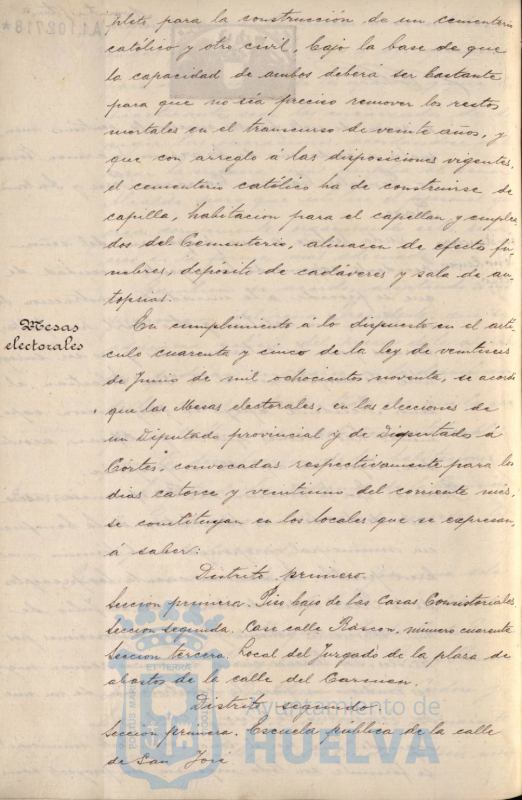 pleto para la construcción de un cementerio
católico y otro civil, bajo la base de que
la capacidad de ambos deberá ser bastante
para que no sea preciso remover los restos
mortales en el transcurso de veinte años, y
que con arreglo á las disposiciones vigentes,
el cementerio católico ha de construirse de
capilla, habitacion para el capellan y emplea-
dos del Cementerio, almacen de efectos fú-
nebres, depósito de cadáveres y sala de au-
topsias.
Mesas
electorales
En cumplimiento á lo dispuesto en el artí-
culo cuarenta y cinco de la ley de veintiseis
de Junio de mil ochocientos noventa, se acordó
que las Mesas electorales, en las elecciones de
un Diputado provincial y de Diputados á
Córtes, convocadas respectivamente para los
dias catorce y veintiuno del corriente mes,
se constituyan en los locales que se expresan,
á saber:
Distrito primero.
Seccion primera. Piso bajo de las Casas Consistoriales,
Seccion segunda. Casa calle Rascon, número cuarenta
Seccion tercera. Local del Juzgado de la plaza de
abastos de la calle del Carmen.
Distrito segundo.
Seccion primera. Escuela pública de la calle
de San José
Ayuntamiento de
HUELVA